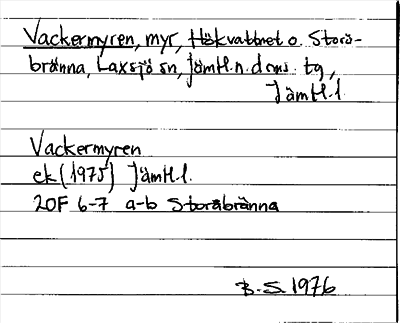 Vackermyren, myr, Hökvattnet o. Storå-
bränna, Laxsjö sn, Jämtl.n. dms. tg,
Jämtl.l.
Vackermyren
ek (1975) Jämtl.l.
20F 6-7 a-b Storåbränna
B.S. 1976